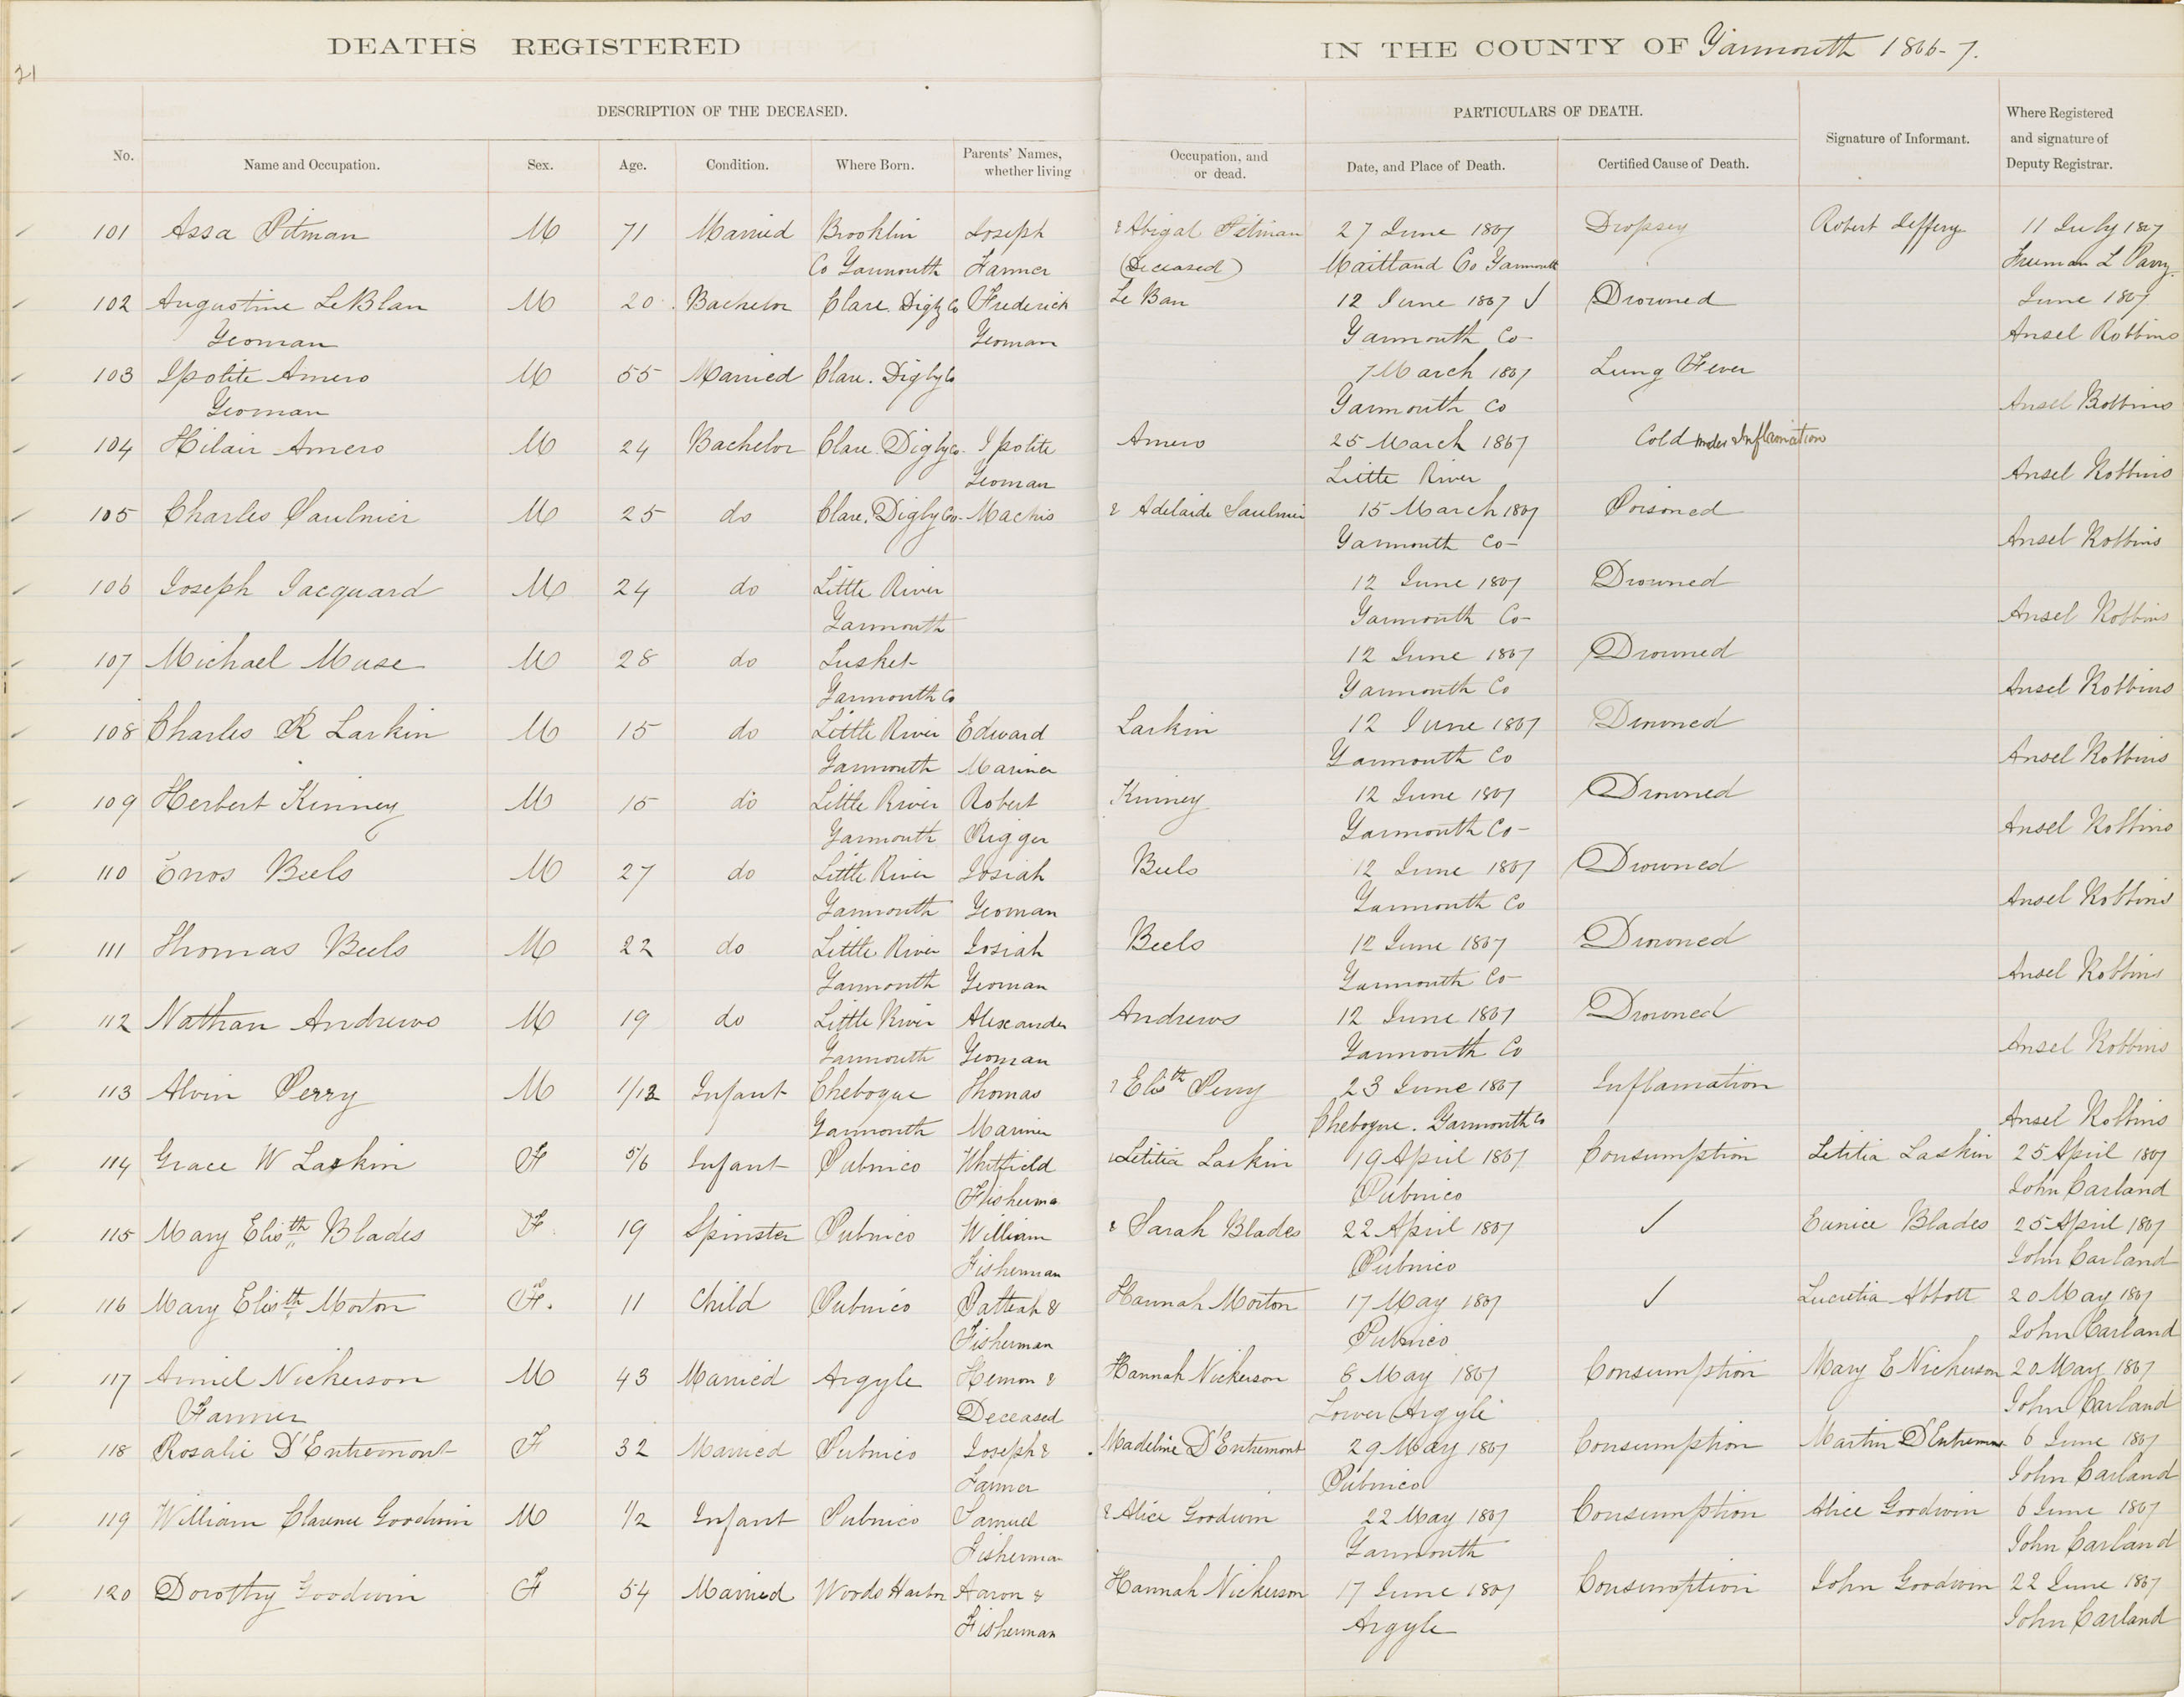 DEATHS REGISTERED IN THE COUNTY OF Yarmouth 1866-7.
21
DESCRIPTION OF THE DECEASED. PARTICULARS OF DEATH.
No. Name and Occupation. Sex. Age. Condition. Where Born. Parents' Names, whether living Occupation, and or dead. Date, and Place of Death. Certified Cause of Death. Signature of Informant. Where Registered and signature of Deputy Registrar.
101 Assa Pitman M 71 Married Brooklin Joseph & Abigal Pitman 27 June 1867 Dropsey Robert Jeffery 11 July 1867
Co Yarmouth Farmer (Deceased) Maitland Co Yarmouth Freeman L Parry
102 Augustine LeBlan M 20 Bachelor Clare. Digby Co Frederick Le Ban 12 June 1867 ✓ Drowned June 1867
Yeoman Yeoman Yarmouth Co- Ansel Robbins
103 Ipolite Amero M 55 Married Clare. Digby Co 7 March 1867 Lung Fever
Yeoman Yarmouth Co Ansel Robbins
104 Hilair Amero M 24 Bachelor Clare. Digby Co- Ipolite Amero 25 March 1867 Cold Inflamation
Yeoman Little River Ansel Robbins
105 Charles Saulnier M 25 do Clare, Digby Co- Machis & Adelaide Saulnier 15 March 1867 Poisoned
Yarmouth Co- Ansel Robbins
106 Joseph Jacquard M 24 do Little River 12 June 1867 Drowned
Yarmouth Yarmouth Co- Ansel Robbins
107 Michael Muse M 28 do Tusket 12 June 1867 Drowned
Yarmouth Co Yarmouth Co Ansel Robbins
108 Charles R Larkin M 15 do Little River Edward Larkin 12 June 1867 Drowned
Yarmouth Mariner Yarmouth Co Ansel Robbins
109 Herbert Kinney M 15 do Little River Robert Kinney 12 June 1867 Drowned
Yarmouth Rigger Yarmouth Co- Ansel Robbins
110 Enos Beels M 27 do Little River Josiah Beels 12 June 1867 Drowned
Yarmouth Yeoman Yarmouth Co Ansel Robbins
111 Thomas Beels M 22 do Little River Josiah Beels 12 June 1867 Drowned
Yarmouth Yeoman Yarmouth Co- Ansel Robbins
112 Nathan Andrews M 19 do Little River Alexander Andrews 12 June 1867 Drowned
Yarmouth Yeoman Yarmouth Co Ansel Robbins
113 Alvin Perry M 1/12 Infant Chebogue Thomas & Elisth Perry 23 June 1867 Inflamation
Yarmouth Mariner Chebogue. Yarmouth Co Ansel Robbins
114 Grace W Larkin F 5/6 Infant Pubnico Whitfield & Letitia Larkin 19 April 1867 Consumption Letitia Larkin 25 April 1867
Fisherma Pubnico John Carland
115 Mary Elisth Blades F 19 Spinster Pubnico William & Sarah Blades 22 April 1867 ✓ Eunice Blades 25 April 1867
Fisherman Pubnico John Carland
116 Mary Elisth Morton F. 11 Child Pubnico & Hannah Morton 17 May 1867 ✓ Lucretia Abbott 20 May 1867
Fisherman Pubnico John Carland
117 Nickerson M 43 Married Argyle Hemon & Hannah Nickerson 8 May 1867 Consumption Mary E Nickerson 20 May 1867
Farmer Deceased Lower Argyle John Carland
118 Rosalie D'Entremont F 32 Married Pubnico Joseph & Madeline D'Entremont 29 May 1867 Consumption Martin D'Entremon 6 June 1867
Farmer Pubnico John Carland
119 William Clarence Goodwin M 1/2 Infant Pubnico Samuel & Alice Goodwin 22 May 1867 Consumption Alice Goodwin 6 June 1867
Fisherman Yarmouth John Carland
120 Dorothy Goodwin F 54 Married Woods Harbor Aaron & Hannah Nickerson 17 June 1867 Consumption John Goodwin 22 June 1867
Fisherman Argyle John Carland